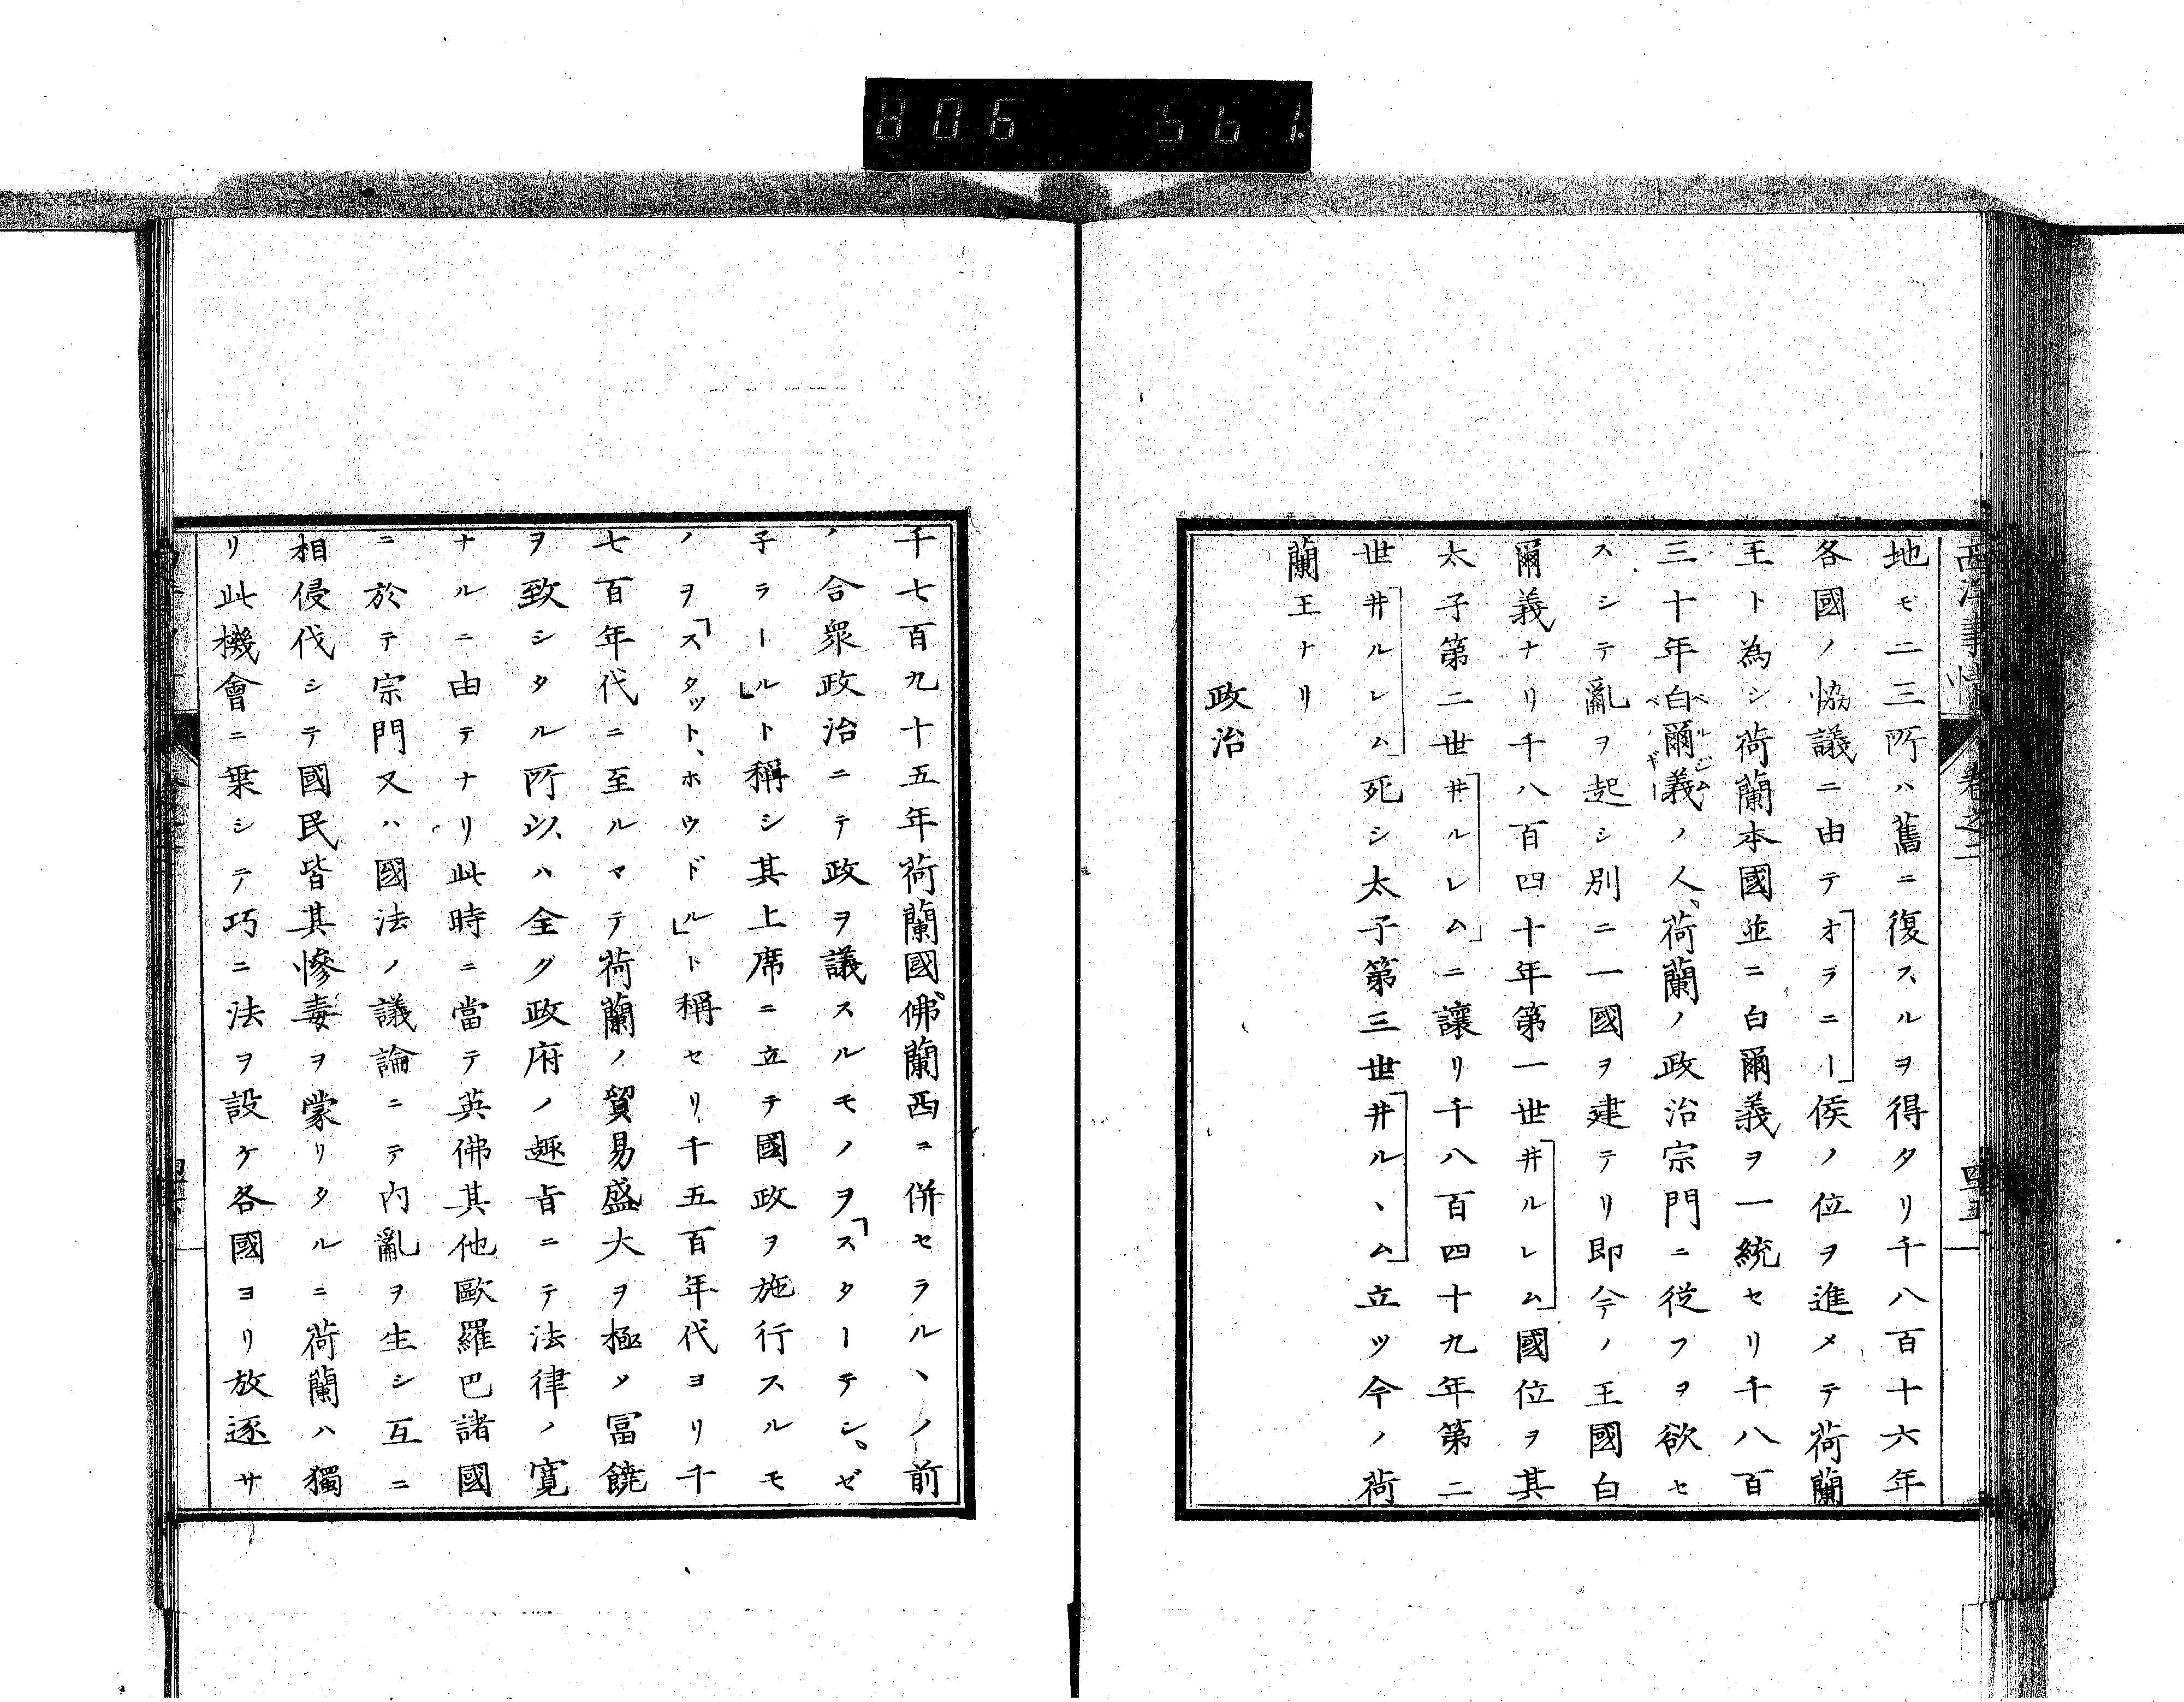 806 561.
西洋事情 卷之二 四十五
地モ二三所ハ舊ニ復スルヲ得タリ千八百十六年
各國ノ恊議ニ由テオラニー侯ノ位ヲ進メテ荷蘭
王ト為シ荷蘭本國並ニ白爾義ヲ一統セリ千八百
三十年白爾義ノ人、荷蘭ノ政治宗門ニ従フヲ欲セ
スシテ亂ヲ起シ別ニ一國ヲ建テリ即今ノ王國白
爾義ナリ千八百四十年第一世井ルレム國位ヲ其
太子第二世井ルレムニ讓リ千八百四十九年第二
世井ルレム死シ太子第三世井ルヽム立ツ今ノ荷
蘭王ナリ
政治
千七百九十五年荷蘭國佛蘭西ニ併セラルヽノ前
ノ合衆政治ニテ政ヲ議スルモノヲ「スターテン、ゼ
子ラール」ト稱シ其上席ニ立テ國政ヲ施行スルモ
ノヲ「スタット、ホウドル」ト稱セリ千五百年代ヨリ千
七百年代ニ至ルマテ荷蘭ノ貿易盛大ヲ極メ冨饒
ヲ致シタル所以ハ全ク政府ノ趣旨ニテ法律ノ寛
ナルニ由テナリ此時ニ當テ英佛其他歐羅巴諸國
ニ於テ宗門又ハ國法ノ議論ニテ内亂ヲ生シ互ニ
相侵伐シテ國民皆其慘毒ヲ蒙リタルニ荷蘭ハ獨
リ此機會ニ乗シテ巧ニ法ヲ設ケ各國ヨリ放逐サ